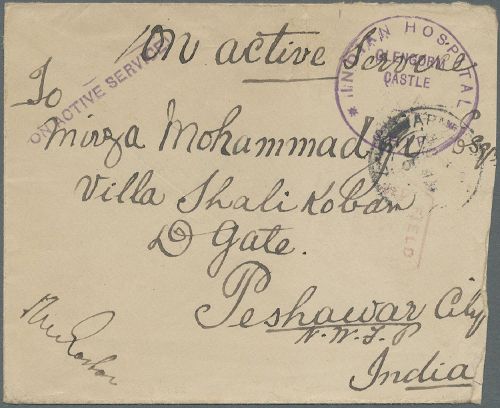 On active Service
ON ACTIVE SERVICE
INDIAN HOSPITAL
GLENGORM
CASTLE
To
Mirza Mohammad
Villa Shalikoban
D Gate.
Peshawar City
N.W.F.P
India